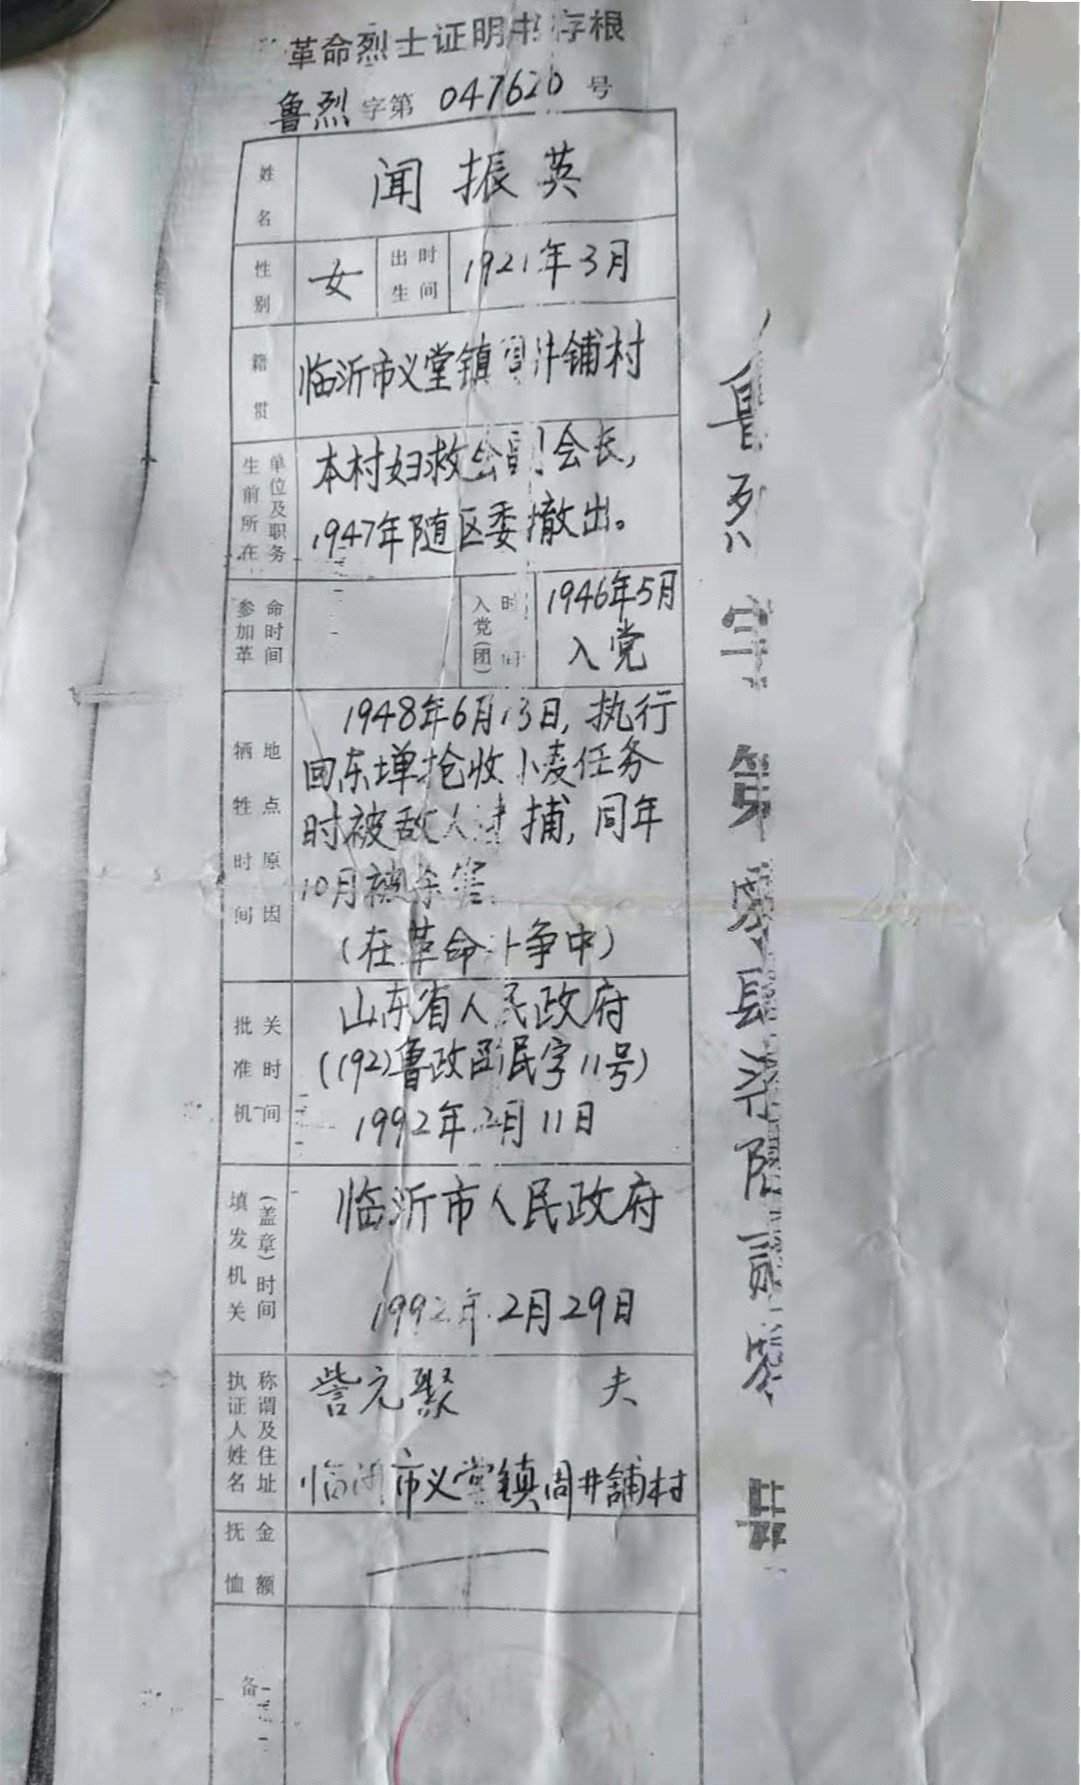 革命烈士证明书存根
鲁烈 字第 047620 号
姓名 闻振英
性别 女 出生时间 1921年3月
籍贯 临沂市义堂镇周井铺村
生前所在单位及职务 本村妇救会副会长,
1947年随区委撤出。
参加革命时间 入党(团)时间 1946年5月
入党
牺牲时间地点原因 1948年6月13日, 执行
回东埠抢收小麦任务
时被敌人逮捕, 同年
10月被杀害.
(在革命斗争中)
批准机关时间 山东省人民政府
(192)鲁政函民字11号)
1992年2月11日
填发机关(盖章)时间 临沂市人民政府
1992年2月29日
执证人姓名称谓及住址 訾元聚 夫
临沂市义堂镇周井舖村
抚恤金额
备
鲁烈字第零肆柒陆贰零